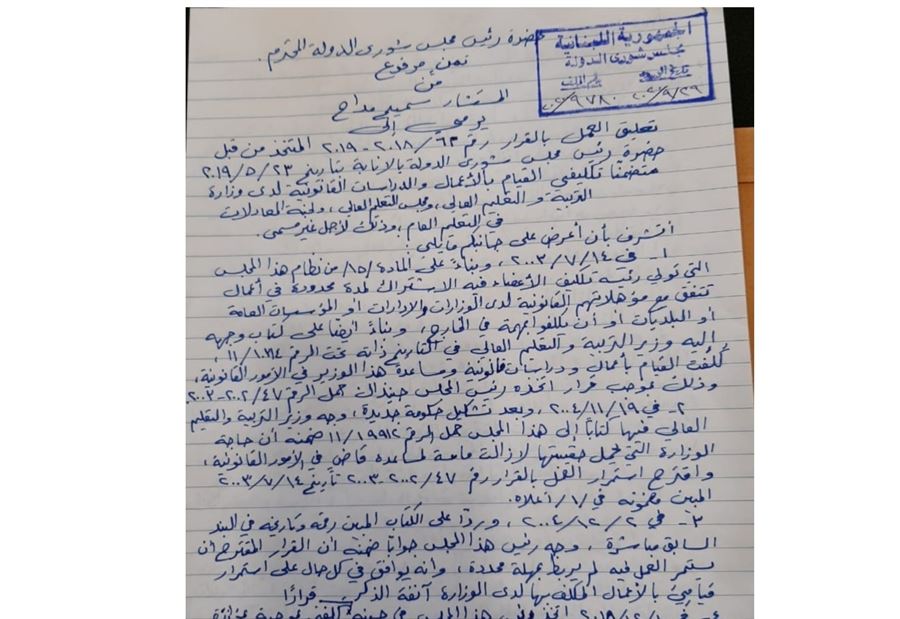 حضرة رئيس مجلس شورى الدولة المحترم.
الجمهورية اللبنانية
مجلس شورى الدولة
تاريخ الورود
رقم الملف
نص مرفوع
من
المستشار سميح مداح
يرمي إلى
تعليق العمل بالقرار رقم ٦٣/٢٠١٨-٢٠١٩ المتخذ من قبل
حضرة رئيس مجلس شورى الدولة بالإنابة بتاريخ ٢٣/٥/٢٠١٩
متضمناً تكليفي القيام بالأعمال والدراسات القانونية لدى وزارة
التربية و التعليم العالي، ومجلس التعليم العالي، ولجنة المعادلات
في التعليم العام، وذلك لأجل غير مسمى.
أتشرف بأن أعرض على جانبكم ما يلي:
١- في ١٤/٧/٢٠٠٣، وبناءً على المادة /١٥/ من نظام هذا المجلس
التي تولي رئيسه تكليف الأعضاء فيه الاشتراك لمدة محدودة في أعمال
تتفق مع مؤهلاتهم القانونية لدى الوزارات والادارات أو المؤسسات العامة
أو البلديات أو أن يكلفوا بمهمة في الخارج، وبناءً أيضاً على كتاب وجهه
إليه وزير التربية والتعليم العالي في التاريخ ذاته تحت الرقم ١١/،
كُلّفت القيام بأعمال ودراسات قانونية ومساعدة هذا الوزير في الأمور القانونية،
وذلك بموجب قرار اتخذه رئيس المجلس حينذاك حمل الرقم ٤٧/٢٠٠٢-٢٠٠٣.
٢- في ١٩/١١/٢٠٠٤، وبعد تشكيل حكومة جديدة، وجه وزير التربية والتعليم
العالي فيها كتاباً إلى هذا المجلس حمل الرقم ١١/١٩٩١٢ ضمنه أن حاجة
الوزارة التي يحمل حقيبتها لا زالت ماسة لمساعدة قاض في الأمور القانونية،
واقترح استمرار العمل بالقرار رقم ٤٧/٢٠٠٢-٢٠٠٣ تاريخ ١٤/٧/٢٠٠٣
المبين مضمونه في /١/ أعلاه.
٣- في ٢/١٢/٢٠٠٤، ورداً على الكتاب المبين رقمه وتاريخه في البند
السابق مباشرة، وجه رئيس هذا المجلس جواباً ضمنه أن القرار المقترح أن
يستمر العمل فيه لم يربط بمهلة محددة، وانه يوافق في كل حال على استمرار
قيامي بالأعمال المكلف بها لدى الوزارة آنفة الذكر.
قراراً